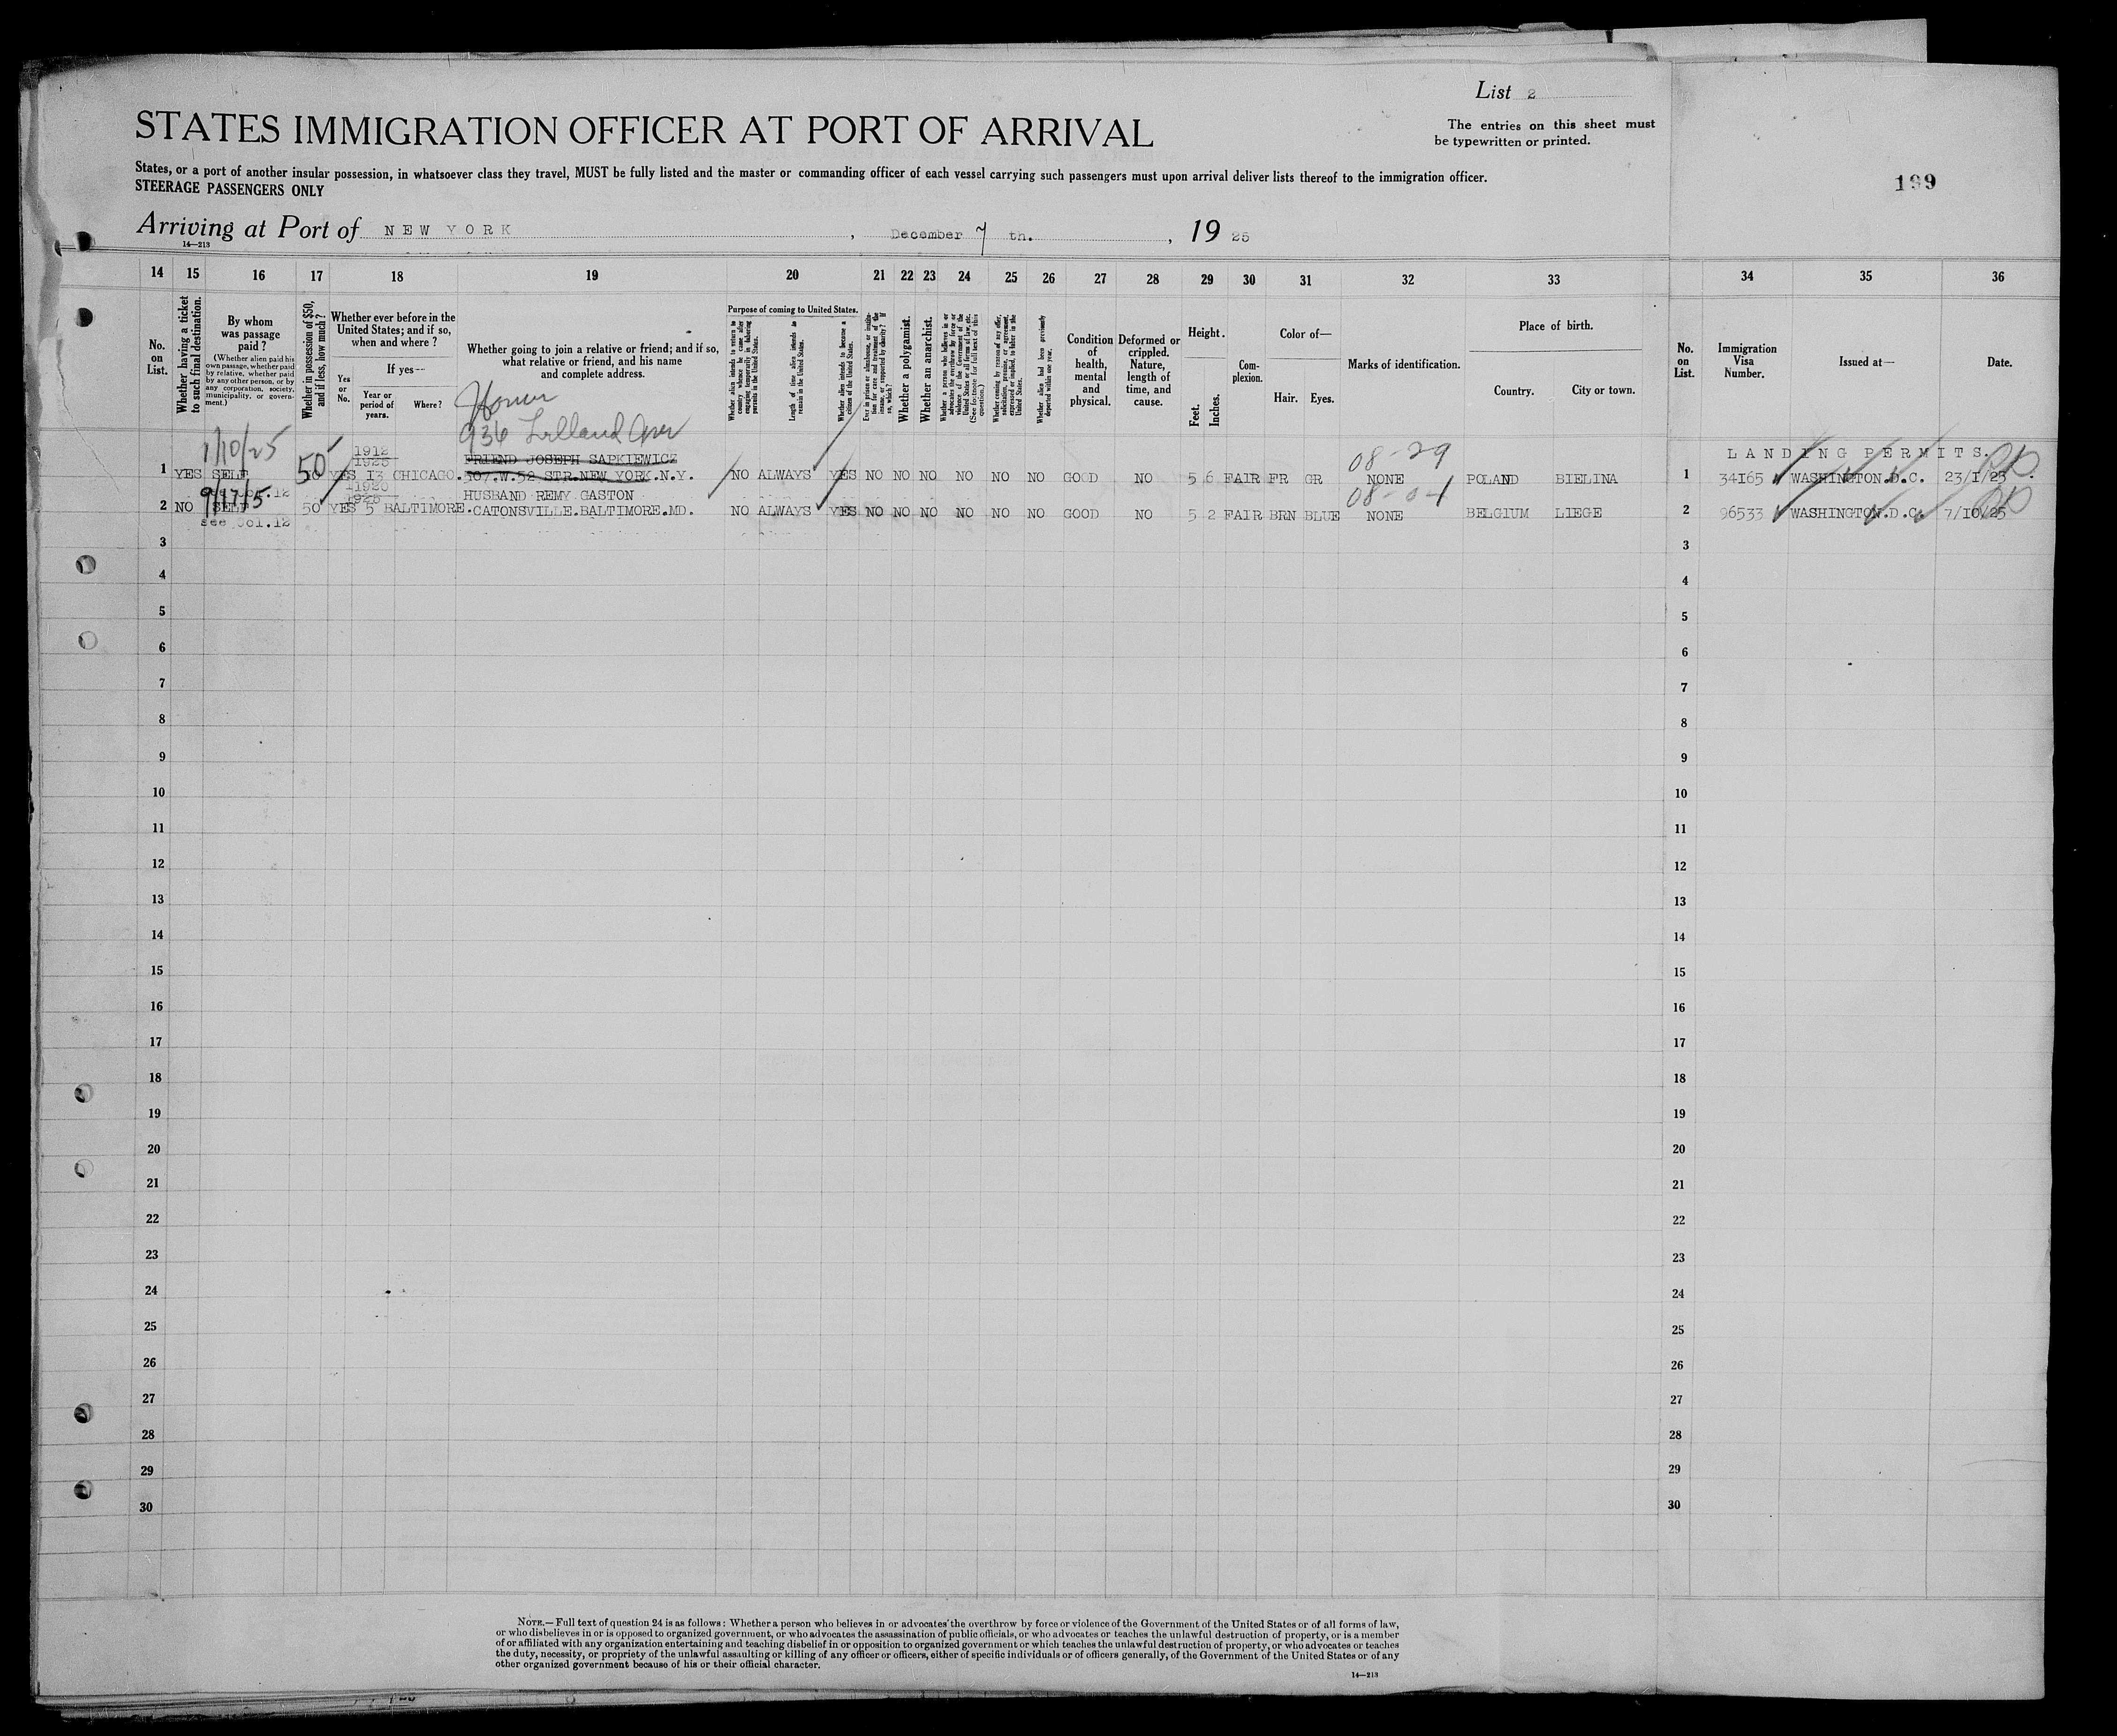 List 2
STATES IMMIGRATION OFFICER AT PORT OF ARRIVAL
The entries on this sheet must
be typewritten or printed.
States, or a port of another insular possession, in whatsoever class they travel, MUST be fully listed and the master or commanding officer of each vessel carrying such passengers must upon arrival deliver lists thereof to the immigration officer.
STEERAGE PASSENGERS ONLY
199
Arriving at Port of NEW YORK, December 7 th., 19 25
14—213
14 15 16 17 18 19 20 21 22 23 24 25 26 27 28 29 30 31 32 33 34 35 36
No. on List.
Whether having a ticket to such final destination.
By whom was passage paid?
(Whether alien paid his own passage, whether paid by relative, whether paid by any other person, or by any corporation, society, municipality, or government.)
Whether in possession of $50, and if less, how much?
Whether ever before in the United States; and if so, when and where?
If yes—
Yes or No.
Year or period of years.
Where?
Whether going to join a relative or friend; and if so, what relative or friend, and his name and complete address.
Purpose of coming to United States.
Whether alien intends to return to country whence he came after engaging temporarily in laboring pursuits in the United States.
Length of time alien intends to remain in the United States.
Whether alien intends to become a citizen of the United States.
Ever in prison or almshouse, or institution for care and treatment of the insane, or supported by charity? If so, which?
Whether a polygamist.
Whether an anarchist.
Whether a person who believes in or advocates the overthrow by force or violence of the Government of the United States or all forms of law, etc. (See footnote for full text of this question.)
Whether coming by reason of any offer, solicitation, promise, or agreement, expressed or implied, to labor in the United States.
Whether alien had been previously deported within one year.
Condition of health, mental and physical.
Deformed or crippled. Nature, length of time, and cause.
Height.
Feet. Inches.
Complexion.
Color of—
Hair. Eyes.
Marks of identification.
Place of birth.
Country. City or town.
No. on List.
Immigration Visa Number.
Issued at—
Date.
936
1/10/25 1912 FRIEND JOSEPH SAPKIEWICZ 08-29 LANDING PERMITS.
1925
1 YES SELF 50 YES 13 CHICAGO. 307.W.52 STR.NEW YORK.N.Y. NO ALWAYS YES NO NO NO NO NO NO GOOD NO 5 6 FAIR FR GR NONE POLAND BIELINA 1 34165 WASHINGTON.D.C. 23/1/25
see Col.12 1920 HUSBAND REMY GASTON 08-04
1925
2 NO SELF 50 YES 5 BALTIMORE. CATONSVILLE.BALTIMORE.MD. NO ALWAYS YES NO NO NO NO NO NO GOOD NO 5 2 FAIR BRN BLUE NONE BELGIUM LIEGE 2 96533 WASHINGTON.D.C. 7/10/25
see Col.12
3 3
4 4
5 5
6 6
7 7
8 8
9 9
10 10
11 11
12 12
13 13
14 14
15 15
16 16
17 17
18 18
19 19
20 20
21 21
22 22
23 23
24 24
25 25
26 26
27 27
28 28
29 29
30 30
NOTE.—Full text of question 24 is as follows: Whether a person who believes in or advocates the overthrow by force or violence of the Government of the United States or of all forms of law,
or who disbelieves in or is opposed to organized government, or who advocates the assassination of public officials, or who advocates or teaches the unlawful destruction of property, or is a member
of or affiliated with any organization entertaining and teaching disbelief in or opposition to organized government or which teaches the unlawful destruction of property, or who advocates or teaches
the duty, necessity, or propriety of the unlawful assaulting or killing of any officer or officers, either of specific individuals or of officers generally, of the Government of the United States or of any
other organized government because of his or their official character.
14—213